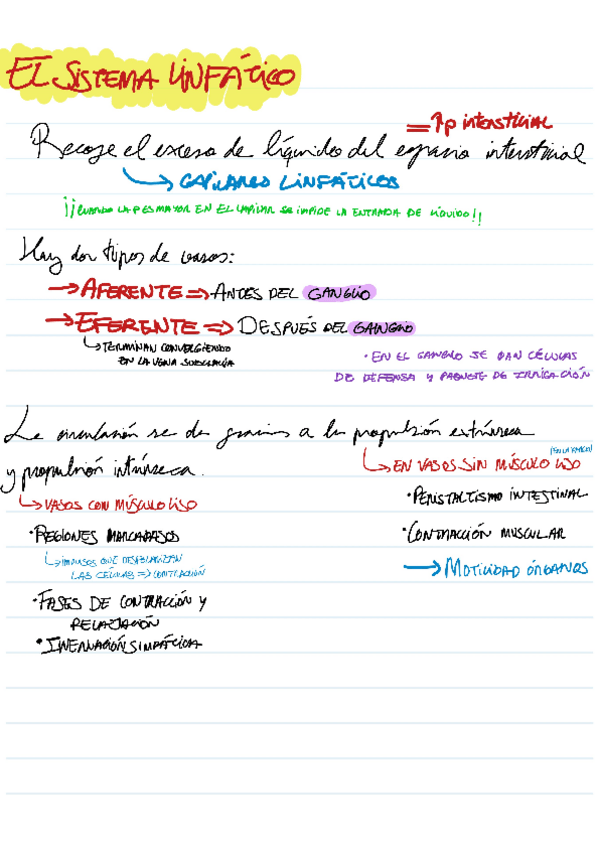 EL SISTEMA LINFÁTICO
= ↑p intersticial
Recoge el exceso de líquidos del espacio intersticial
CAPILARES LINFÁTICOS
¡¡CUANDO LA P ES MAYOR EN EL CAPILAR SE IMPIDE LA ENTRADA DE LÍQUIDO!!
Hay dos tipos de vasos:
→ AFERENTE => ANTES DEL GANGLIO
→ EFERENTE => DESPUÉS DEL GANGLIO
TERMINAN CONVERGIENDO
EN LA VENA SUBCLAVIA
· EN EL GANGLIO SE DAN CÉLULAS
DE DEFENSA Y PAQUETE DE IRRIGACIÓN
La circulación se da gracias a la propulsión extrínseca
y propulsión intrínseca.
EN VASOS SIN MÚSCULO LISO
VASOS CON MÚSCULO LISO
· PERISTALTISMO INTESTINAL
· REGIONES MARCAPASOS
· CONTRACCIÓN MUSCULAR
IMPULSOS QUE DESPOLARIZAN
LAS CÉLULAS => CONTRACCIÓN
→ MOTILIDAD ÓRGANOS
· FASES DE CONTRACCIÓN Y
RELAJACIÓN
· INERVACIÓN SIMPÁTICA